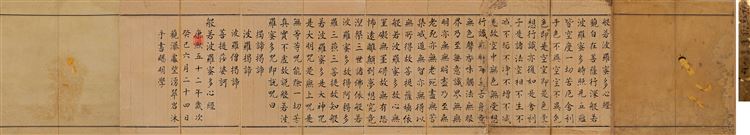 般若波羅蜜多心經
觀自在菩薩行深般若
波羅蜜多時照見五蘊
皆空度一切苦厄舍利
子色不異空空不異色
色即是空空即是色受
想行識亦復如是舍利
子是諸法空相不生不
滅不垢不淨不增不減
是故空中無色無受想
行識無眼耳鼻舌身意
無色聲香味觸法無眼
界乃至無意識界無無
明亦無無明盡乃至無
老死亦無老死盡無苦
集滅道無智亦無得以
無所得故菩提薩埵依
般若波羅蜜多故心無
罣礙無罣礙故無有恐
怖遠離顛倒夢想究竟
涅槃三世諸佛依般若
波羅蜜多故得阿耨多
羅三藐三菩提故知般
若波羅蜜多是大神咒
是大明咒是無上咒是
無等等咒能除一切苦
真實不虛故說般若波
羅蜜多咒即說咒曰
揭諦揭諦
波羅揭諦
波羅僧揭諦
菩提薩婆訶
般若波羅蜜多心經
康熙五十二年歲次
癸巳六月二十四日
望湧翠岩沐
手書賜明學